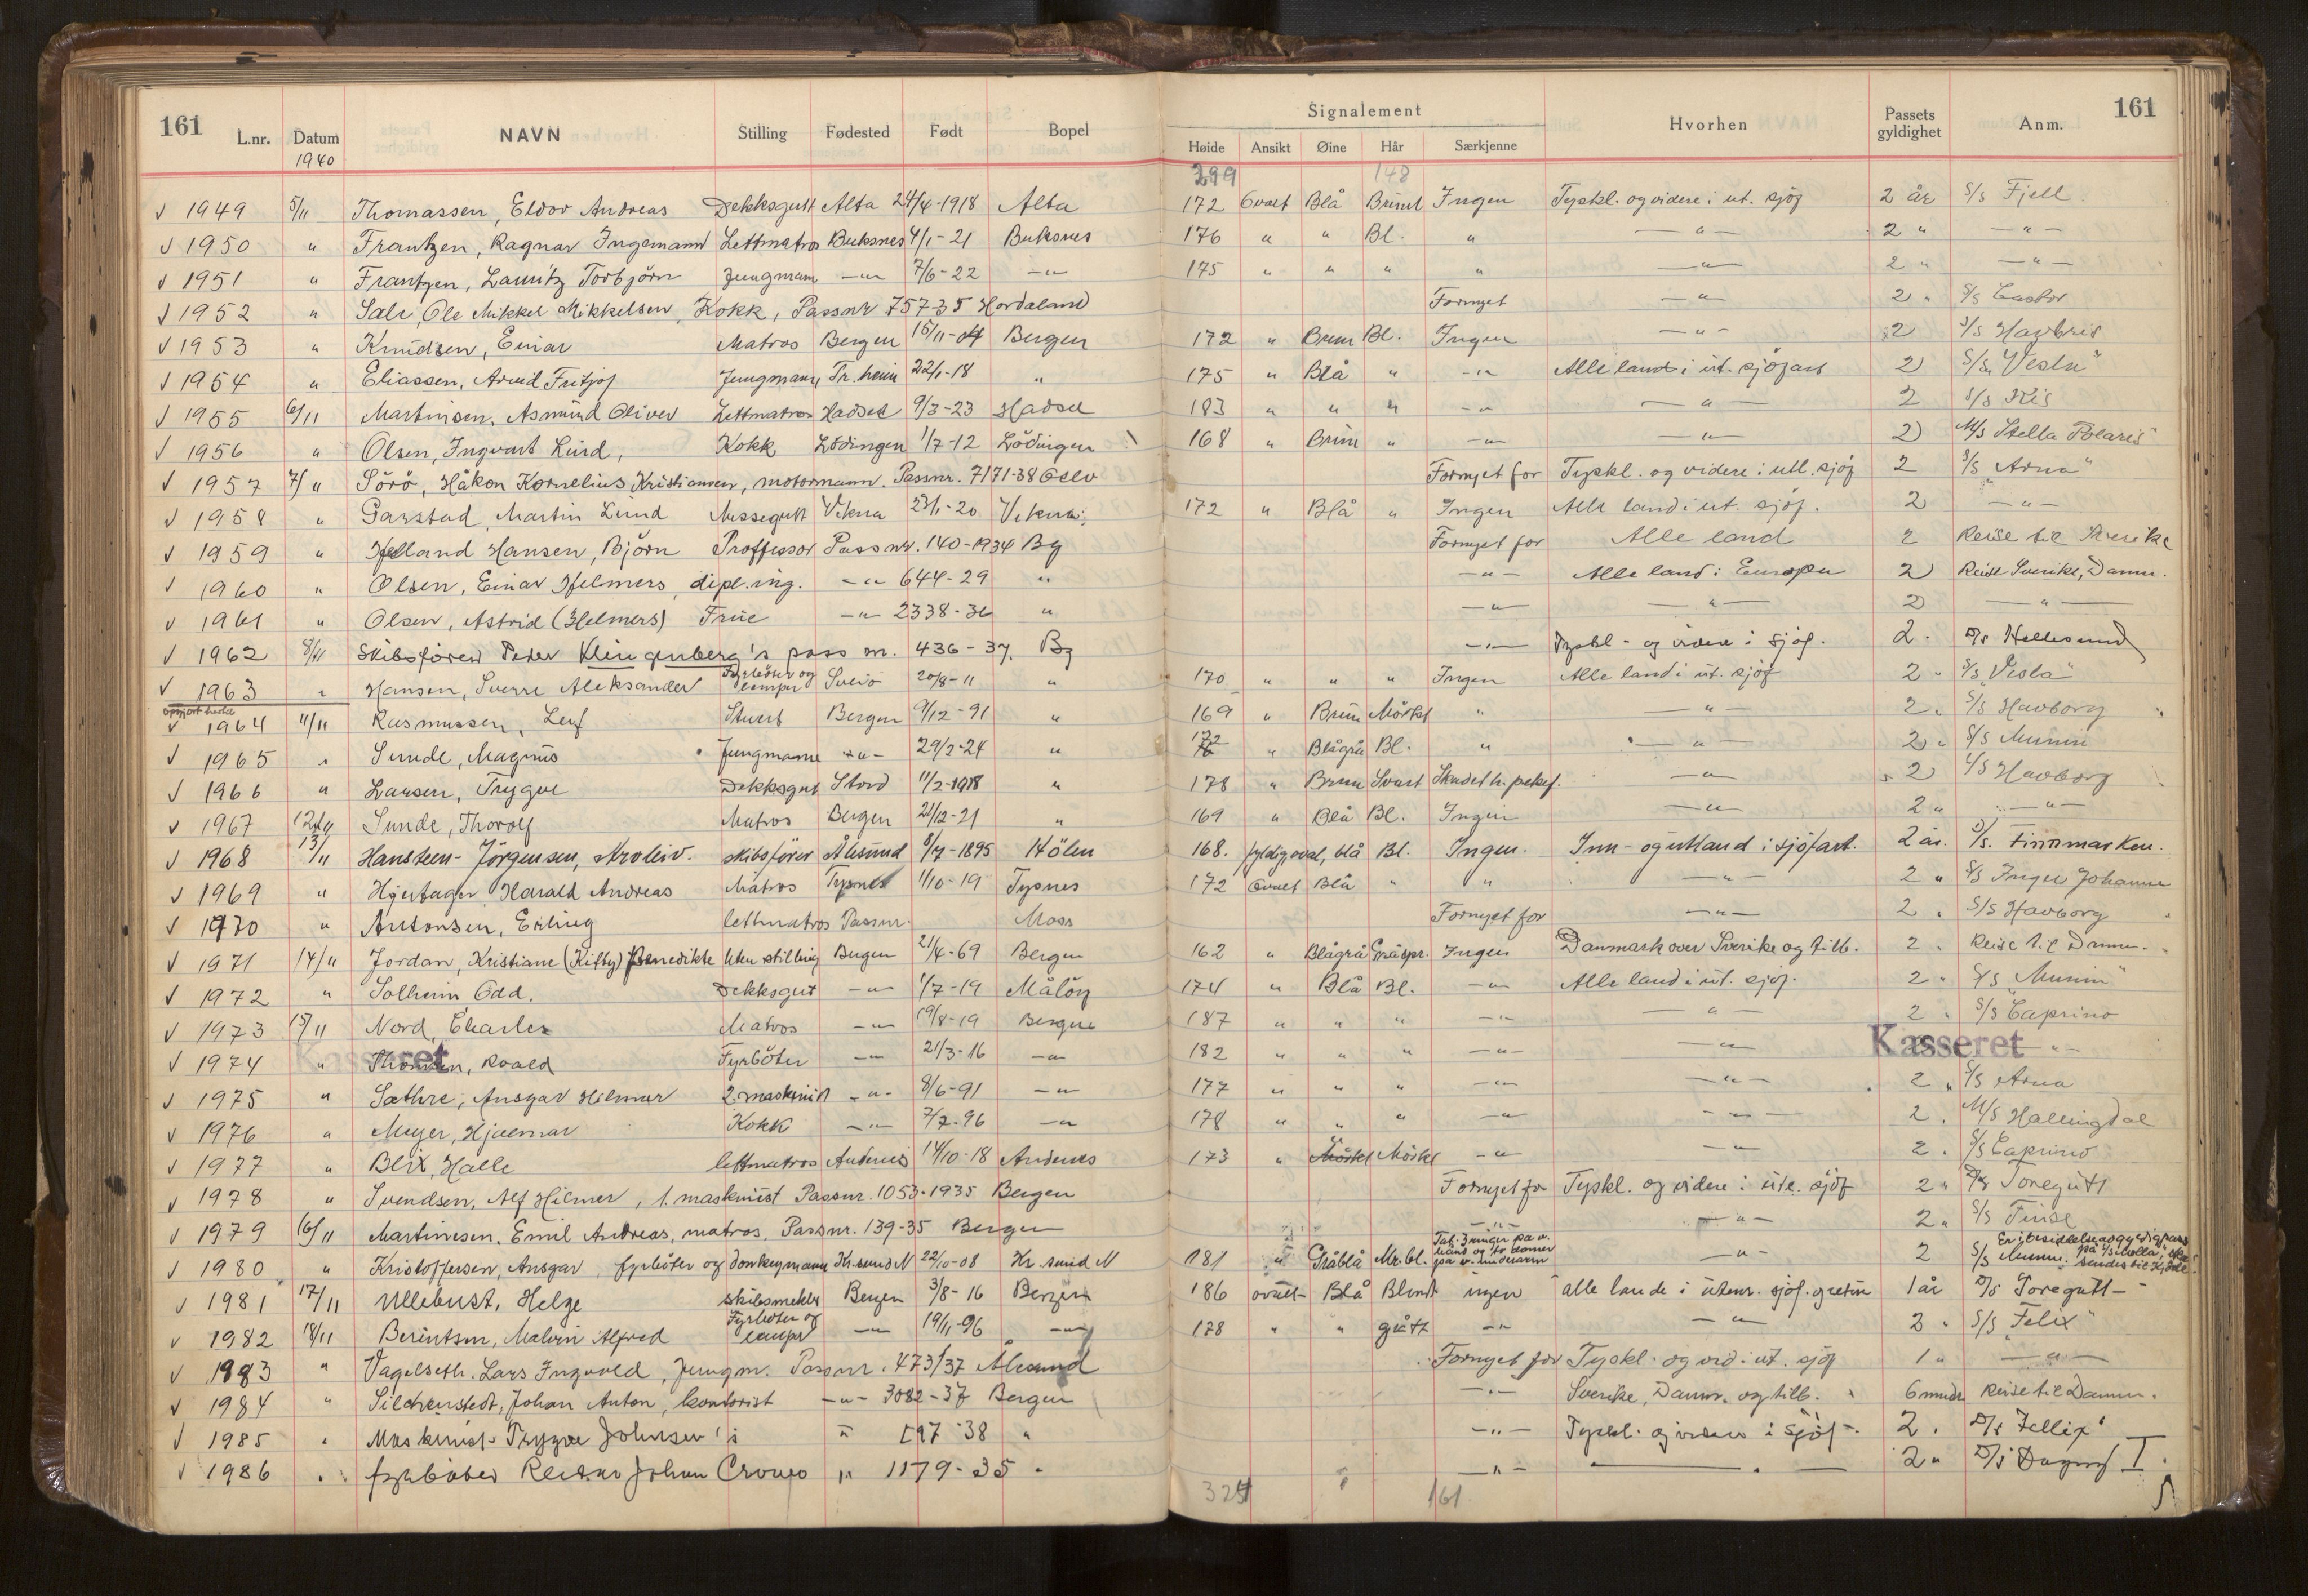 161 L.nr. Datum NAVN Stilling Fødested Født Bopel Signalement Hvorhen Passets gyldighet Anm. 161
1940 Høide Ansikt Øine Hår Særkjenne
299 148
√ 1949 5/11 Thomassen, Eldor Andreas Dekksgutt Alta 24/4-1918 Alta 172 Ovalt Blå Brunt Ingen Tyskl. og videre i ut. sjøf 2 år S/s Fjell.
√ 1950 " Frantzen, Ragnar Ingemann Lettmatros Buksnes 4/1-21 Buksnes 176 " " Bl. " -"- 2 " -"-
√ 1951 " Frantzen, Lauritz Torbjörn Jungmann -"- 7/6-22 -"- 175 " " " " -"- 2 " -"-
√ 1952 " Ole Mikkel Mikkelsen, Kokk, Passnr 757-35 Hordaland Fornyet -"- 2 " S/s Castor
√ 1953 " Knudsen, Einar Matros Bergen 15/11-04 Bergen 172 " Brun Bl. Ingen -"- 2 S/s Havbris
√ 1954 " Eliassen, Arvid Fritjof Jungmann Tr.heim 22/1-18 " 175 " Blå " -"- Alle land i ut. sjøfart 2 S/s "Vesla"
√ 1955 6/11 Martinsen, Asmund Oliver Lettmatros Hadsel 9/3-23 Hadsel 183 " " " -"- -"- 2 S/s Kis
√ 1956 " Olsen, Ingvart Lind, Kokk Lödingen 1/7-12 Lödingen 168 " Brun " -"- -"- 2 M/s Stella Polaris"
√ 1957 7/" Sörö, Håkon Kornelius Kristiansen, motormann. Passnr. 7171-38 Oslo Fornyet for Tyskl. og videre i utl. sjøf 2 S/s "Arna"
√ 1958 " Garstad, Martin Lund Messegutt Vikna 23/1-20 Vikna 172 " Blå " Ingen Alle land i ut. sjøf. 2 -"-
√ 1959 " Helland Hansen, Björn Proffessor Passnr. 140-1934 Bg Fornyet for Alle land 2 Reise til Sverike
√ 1960 " Olsen, Einar Helmers, dipl.ing. -"- 644-29 " -"- Alle land i Europa 2 Reise Sverike, Danm.
√ 1961 " Olsen, Astrid (Helmers) Frue -"- 2338-36 " -"- -"- 2 -"-
√ 1962 8/11 Skibsförer Peder Klingenberg's pass nr. 436-37. Bg -"- Tyskl- og videre i sjøf. 2. D/s Hellesund
√ 1963 " Hansen, Sverre Aleksander Fyrböter og lemper Sulö 20/8-11 " 170 " " " Ingen Alle land i ut. sjøf 2 " S/s "Vesla"
√ 1964 11/11 Rasmussen, Leif Stuert Bergen 9/12-91 " 169 " Brun Mörkt " -"- 2 " S/s Havborg
√ 1965 " Sunde, Magnus Jungmann -"- 29/2-24 " 172 " Blågrå Bl. " -"- 2 " S/s Munin
√ 1966 " Larsen, Trygve Dekksgut Stord 11/2-1918 " 178 " Brun Svart Skadet h. pekef. -"- 2 S/s Havborg
√ 1967 12/11 Sunde, Thorolf Matros Bergen 21/12-21 " 169 " Blå Bl. Ingen -"- 2 " -"-
√ 1968 13/11 Hansteen-Jörgensen, Aroleiv. skibsförer Ålesund 8/7-1895 Hölen 168. fyldig oval, blå Bl. Ingen. Inn- og utland i sjøfart. 2 år. D/s. Finnmarken.
√ 1969 " Harald Andreas Matros Tysnes 1/10-19 Tysnes 172 Ovalt Blå " " -"- 2 " S/s Inger Johanne
√ 1970 " Antonsen, Erling lettmatros Passnr. Moss Fornyet for -"- 2 " S/S Havborg
√ 1971 14/" Jordan, Kristiane (Kitty) Benedikte Uten stilling Bergen 21/4-69 Bergen 162 " Blågrå Gråspr. Ingen Danmark over Sverike og tilb. 2 " Reise til Danm.
√ 1972 " Solheim Odd. Dekksgut -"- 1/7-19 Målöy 174 " Blå Bl. -"- Alle land i ut. sjøf. 2 " S/s "Munin"
√ 1973 15/11 Nord, Charles Matros -"- 19/8-19 Bergen 187 " " " -"- -"- 2 " S/s Caprino
√ 1974 Kasseret " Roald Fyrböter -"- 21/3-16 -"- 182 " " " -"- -"- Kasseret -"-
√ 1975 " Sæthre, Ansgar Hilmar 2. maskinist -"- 8/6-91 -"- 177 " " " -"- -"- 2 " S/s Arna
√ 1976 " Meyer, Hjalmar Kokk -"- 7/2-96 -"- 178 " " " -"- -"- 2 " M/s Hallingdal
√ 1977 " Blix, Halle lettmatros Andenes 14/10-18 Andenes 173 " Mörkt -"- -"- 2 " S/s Caprino
√ 1978 " Svendsen, Alf Hilmer, 1. maskinist Passnr. 1053-1935 Bergen Fornyet for Tyskl. og videre i utl. sjøf 2 " D/s Toregutt
√ 1979 16/11 Martinsen, Emil Andreas, matros, Passnr. 139-35 Bergen -"- -"- 2 " S/s Finse
√ 1980 " Kristoffersen, Ansgar, fyrböter og donkeymann Kr.sund N 22/10-08 Kr.sund N 181 " Gråblå Mr. bl. Tat. 3 ringer på v. hånd og to damer på v. underarm -"- 2 S/s Munin.
√ 1981 17/11 Ullebust, Helge skibsmekler Bergen 3/8-16 Bergen 186 ovalt Blå Blondt ingen alle lande i utenr. sjøf. 1 år D/s Toregutt-
√ 1982 18/11 Berintsen, Malvin Alfred Fyrböter og lemper -"- 19/11-96 -"- 178 " " grått -"- -"- 2 " S/s "Felix"
√ 1983 " Vagelseth, Lars Ingvald, Jungm. Passnr. 473/37 Ålesund Fornyet for Tyskl. og vid. i ut. sjøf 1 " -"-
√ 1984 " Silchenstedt, Johan Anton, kontorist -"- 3082-37 Bergen -"- Sverike, Danm. og tilb. 6 mndr Reise til Danm.
√ 1985 " Maskinist Trygve Johnsen's " 197-38 " -"- Tyskl. og videre i sjøf-. 2 " D/s Fellix"
√ 1986 " fyrböter Johan " 1179-35 " -"- -"- 2 " D/s Dagny I.
161